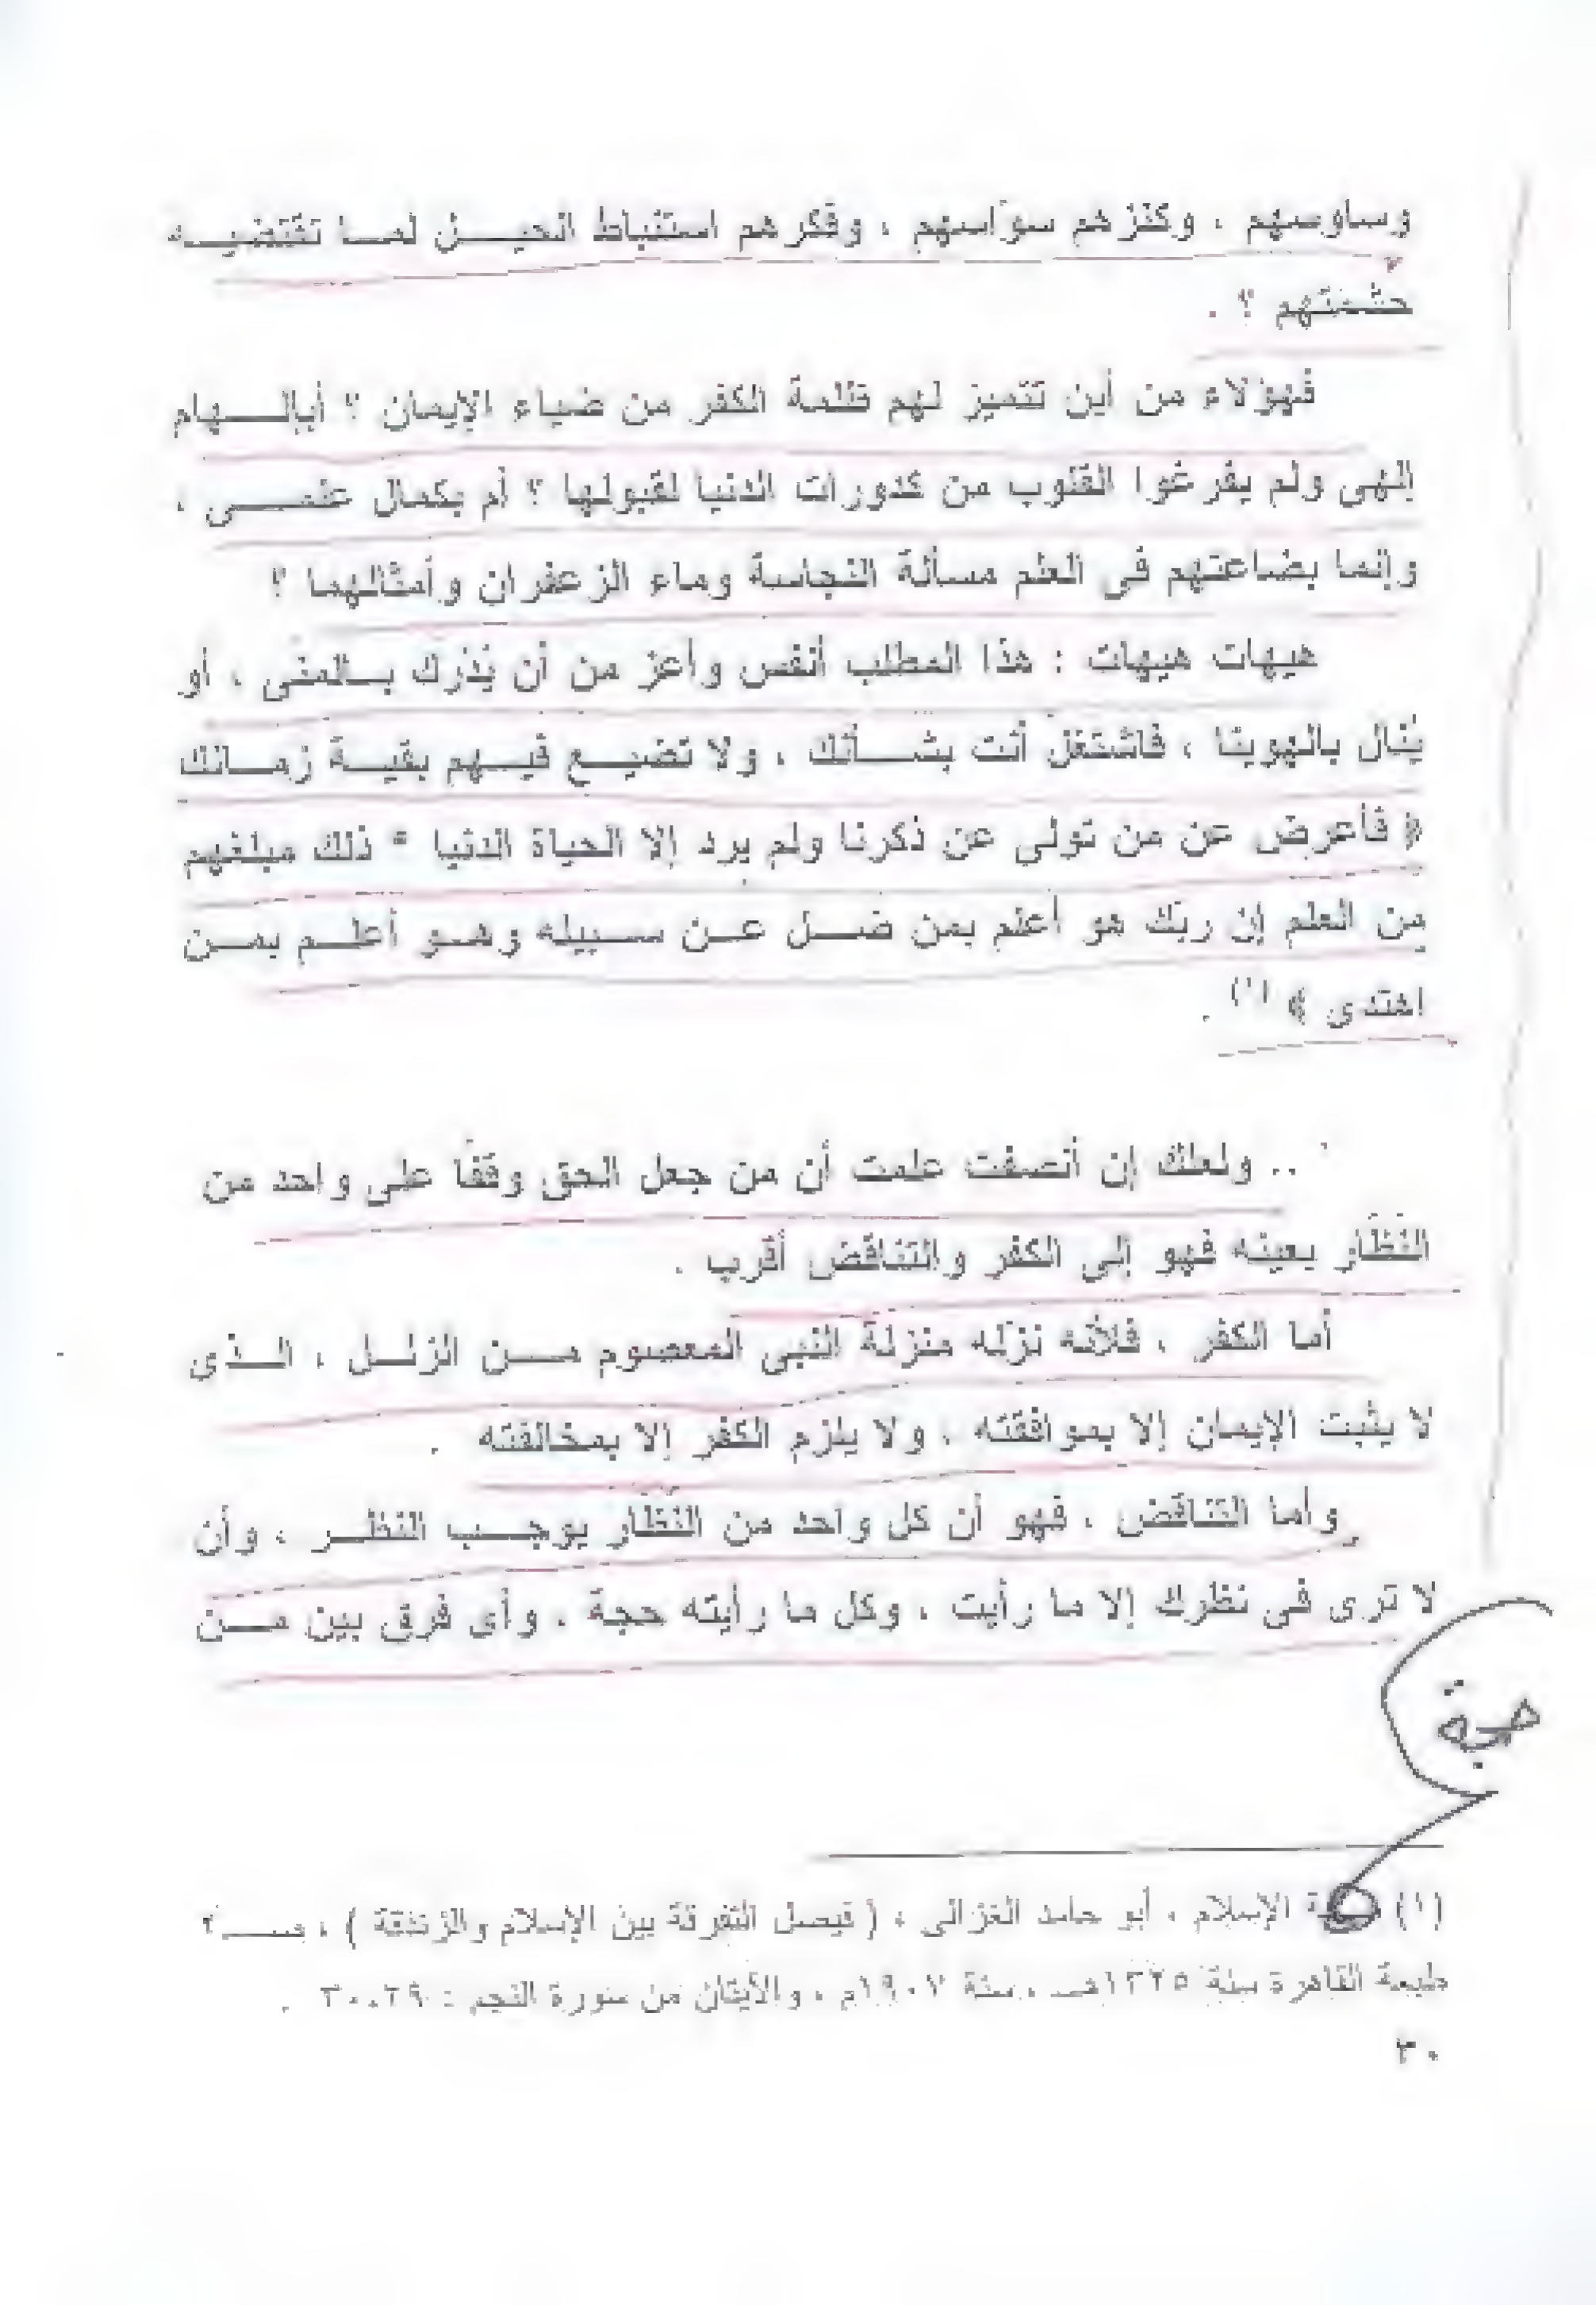 وساوسهم ، وكنزهم سوّاسهم ، وفكرهم استنباط الحيل لما تقتضيه
حشمتهم ؟ .
فهؤلاء من أين تتميز لهم ظلمة الكفر من ضياء الإيمان ؟ أبإلهام
إلهى ولم يفرغوا القلوب من كدورات الدنيا لقبولها ؟ أم بكمال علمى ،
وإنما بضاعتهم فى العلم مسألة النجاسة وماء الزعفران وأمثالهما ؟
هيهات هيهات : هذا المطلب أنفس وأعز من أن يُدْرك بالمنى ، أو
يُنال بالهوينا ، فاشتغل أنت بشأنك ، ولا تضيع فيهم بقية زمانك
﴿ فأعرض عن من تولى عن ذكرنا ولم يرد إلا الحياة الدنيا * ذلك مبلغهم
من العلم إن ربك هو أعلم بمن ضل عن سبيله وهو أعلم بمن
اهتدى ﴾ (١) .
.. ولعلك إن أنصفت علمت أن من جعل الحق وقفًا على واحد من
النُظَّار بعينه فهو إلى الكفر والتناقض أقرب .
أما الكفر ، فلأنه نزّله منزلة النبى المعصوم من الزلل ، الذى
لا يثبت الإيمان إلا بموافقته ، ولا يلزم الكفر إلا بمخالفته .
وأما التناقض ، فهو أن كل واحد من النُظَّار يوجب النظر ، وأن
لا ترى فى نظرك إلا ما رأيت ، وكل ما رأيته حجة ، وأى فرق بين من
حجة
(١) الإسلام ، أبو حامد الغزالى ، ( فيصل التفرقة بين الإسلام والزندقة ) ،
طبعة القاهرة سنة ١٣٢٥هـ ، سنة ١٩٠٧م ، والآيتان من سورة النجم : ٢٩،٣٠ .
٣٠